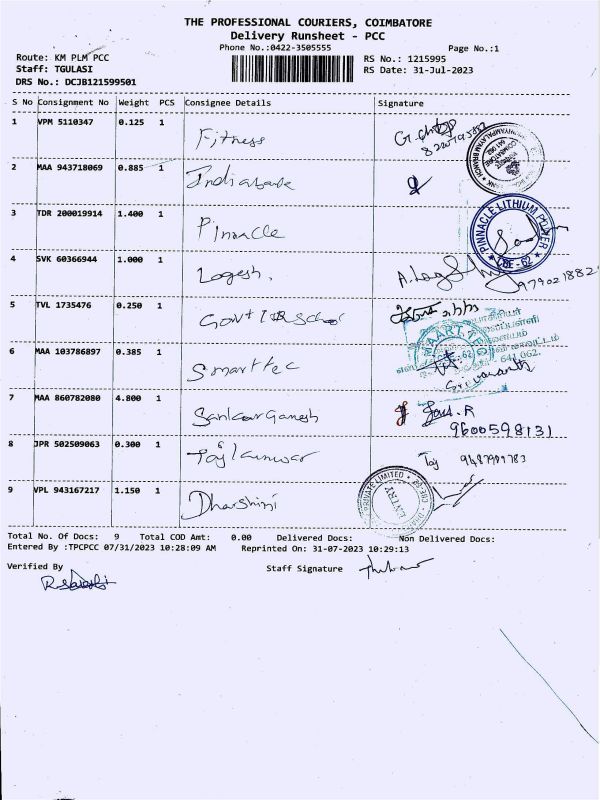 THE PROFESSIONAL COURIERS, COIMBATORE
Delivery Runsheet - PCC
Phone No.:0422-3505555
Page No.:1
Route: KM PLM PCC
RS No.: 1215995
Staff: TGULASI
RS Date: 31-Jul-2023
DRS No.: DCJB121599501
S No Consignment No Weight PCS Consignee Details Signature
1 VPM 5110347 0.125 1 Fitness
2 MAA 943718069 0.885 1 Indiabank
3 TDR 200019914 1.400 1 Pinnacle
PINNACLE LITHIUM POWER
CBE-62
4 SVK 60366944 1.000 1 Logesh.
979021882
5 TVL 1735476 0.250 1 Govt
6 MAA 103786897 0.385 1 Smarttec
641 062.
7 MAA 860782080 4.800 1 Sankar Ganesh
9600598131
8 JPR 502509063 0.300 1 Taj Taj
9 VPL 943167217 1.150 1 Dharshini
PRIVATE LIMITED
ENTRY
Total No. Of Docs: 9 Total COD Amt: 0.00 Delivered Docs: Non Delivered Docs:
Entered By :TPCPCC 07/31/2023 10:28:09 AM Reprinted On: 31-07-2023 10:29:13
Verified By Staff Signature